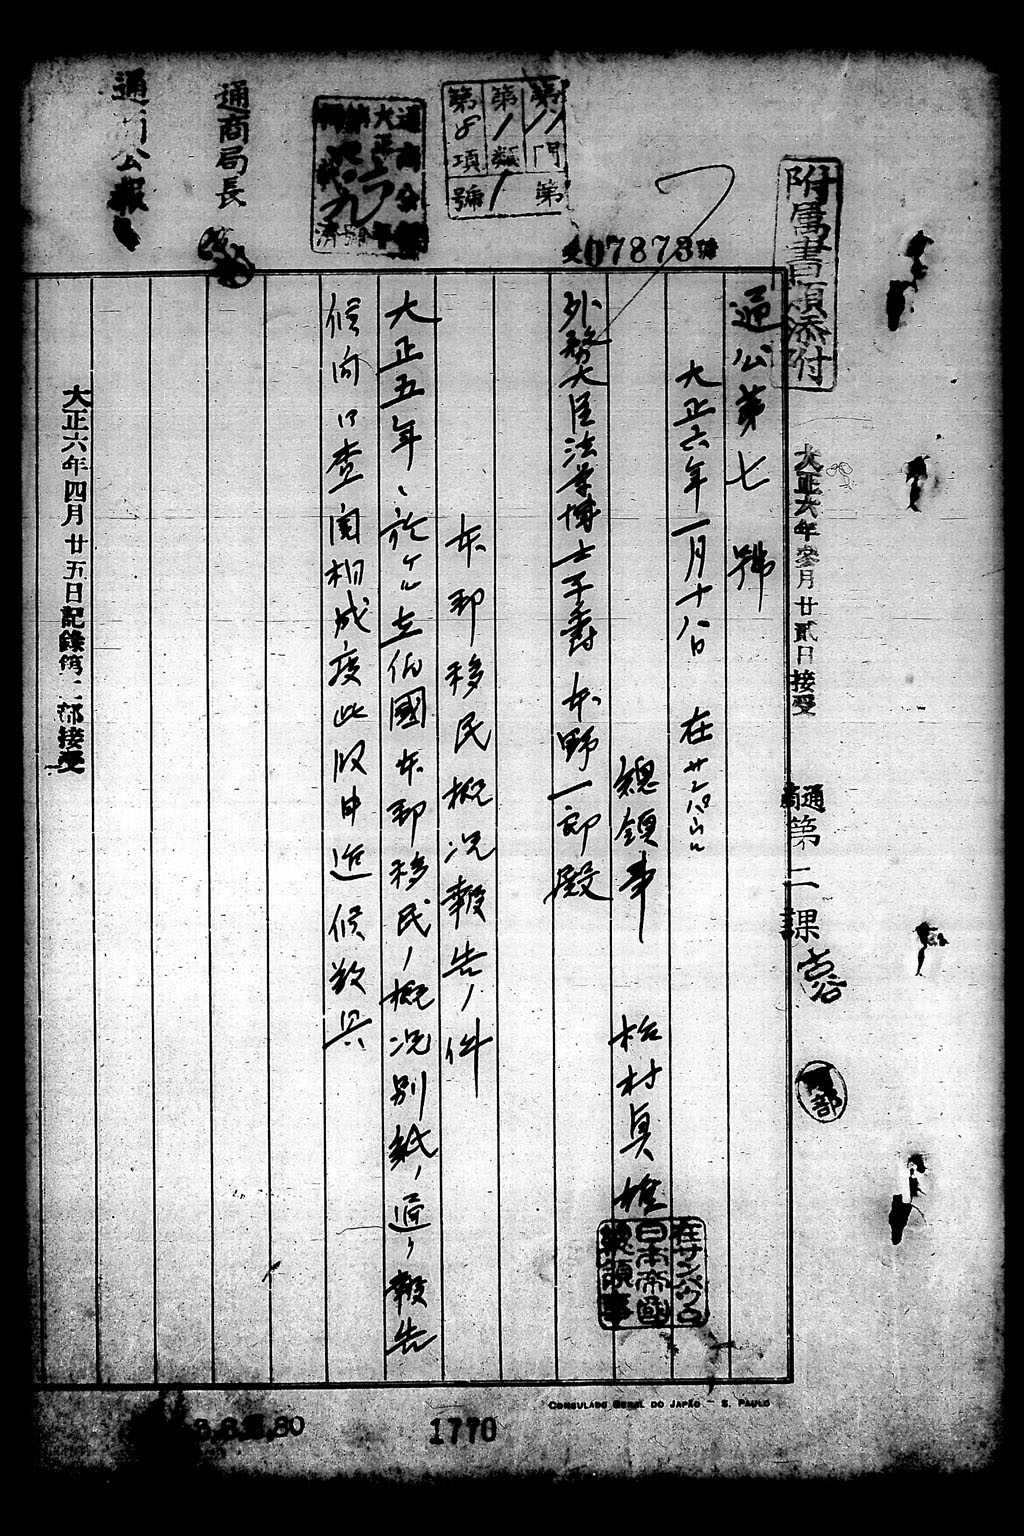 附属書類添付
大正六年參月廿貳日接受
通商第二課
通公第七號
大正六年一月十八日 在サンパウロ
總領事 松村貞雄
在サンパウロ
日本帝國
總領事
外務大臣法学博士子爵 本野一郎殿
受07873號
第11門
第1類
第8項
第1號
本邦移民概況報告ノ件
大正五年ニ於ケル在伯國本邦移民ノ概況別紙ノ通リ報告
候間御查閱相成度此段申進候敬具
通商局長
通商公報
大正六年四月廿五日記錄第二部接受
CONSULADO GERAL DO JAPÃO – S. PAULO
1770